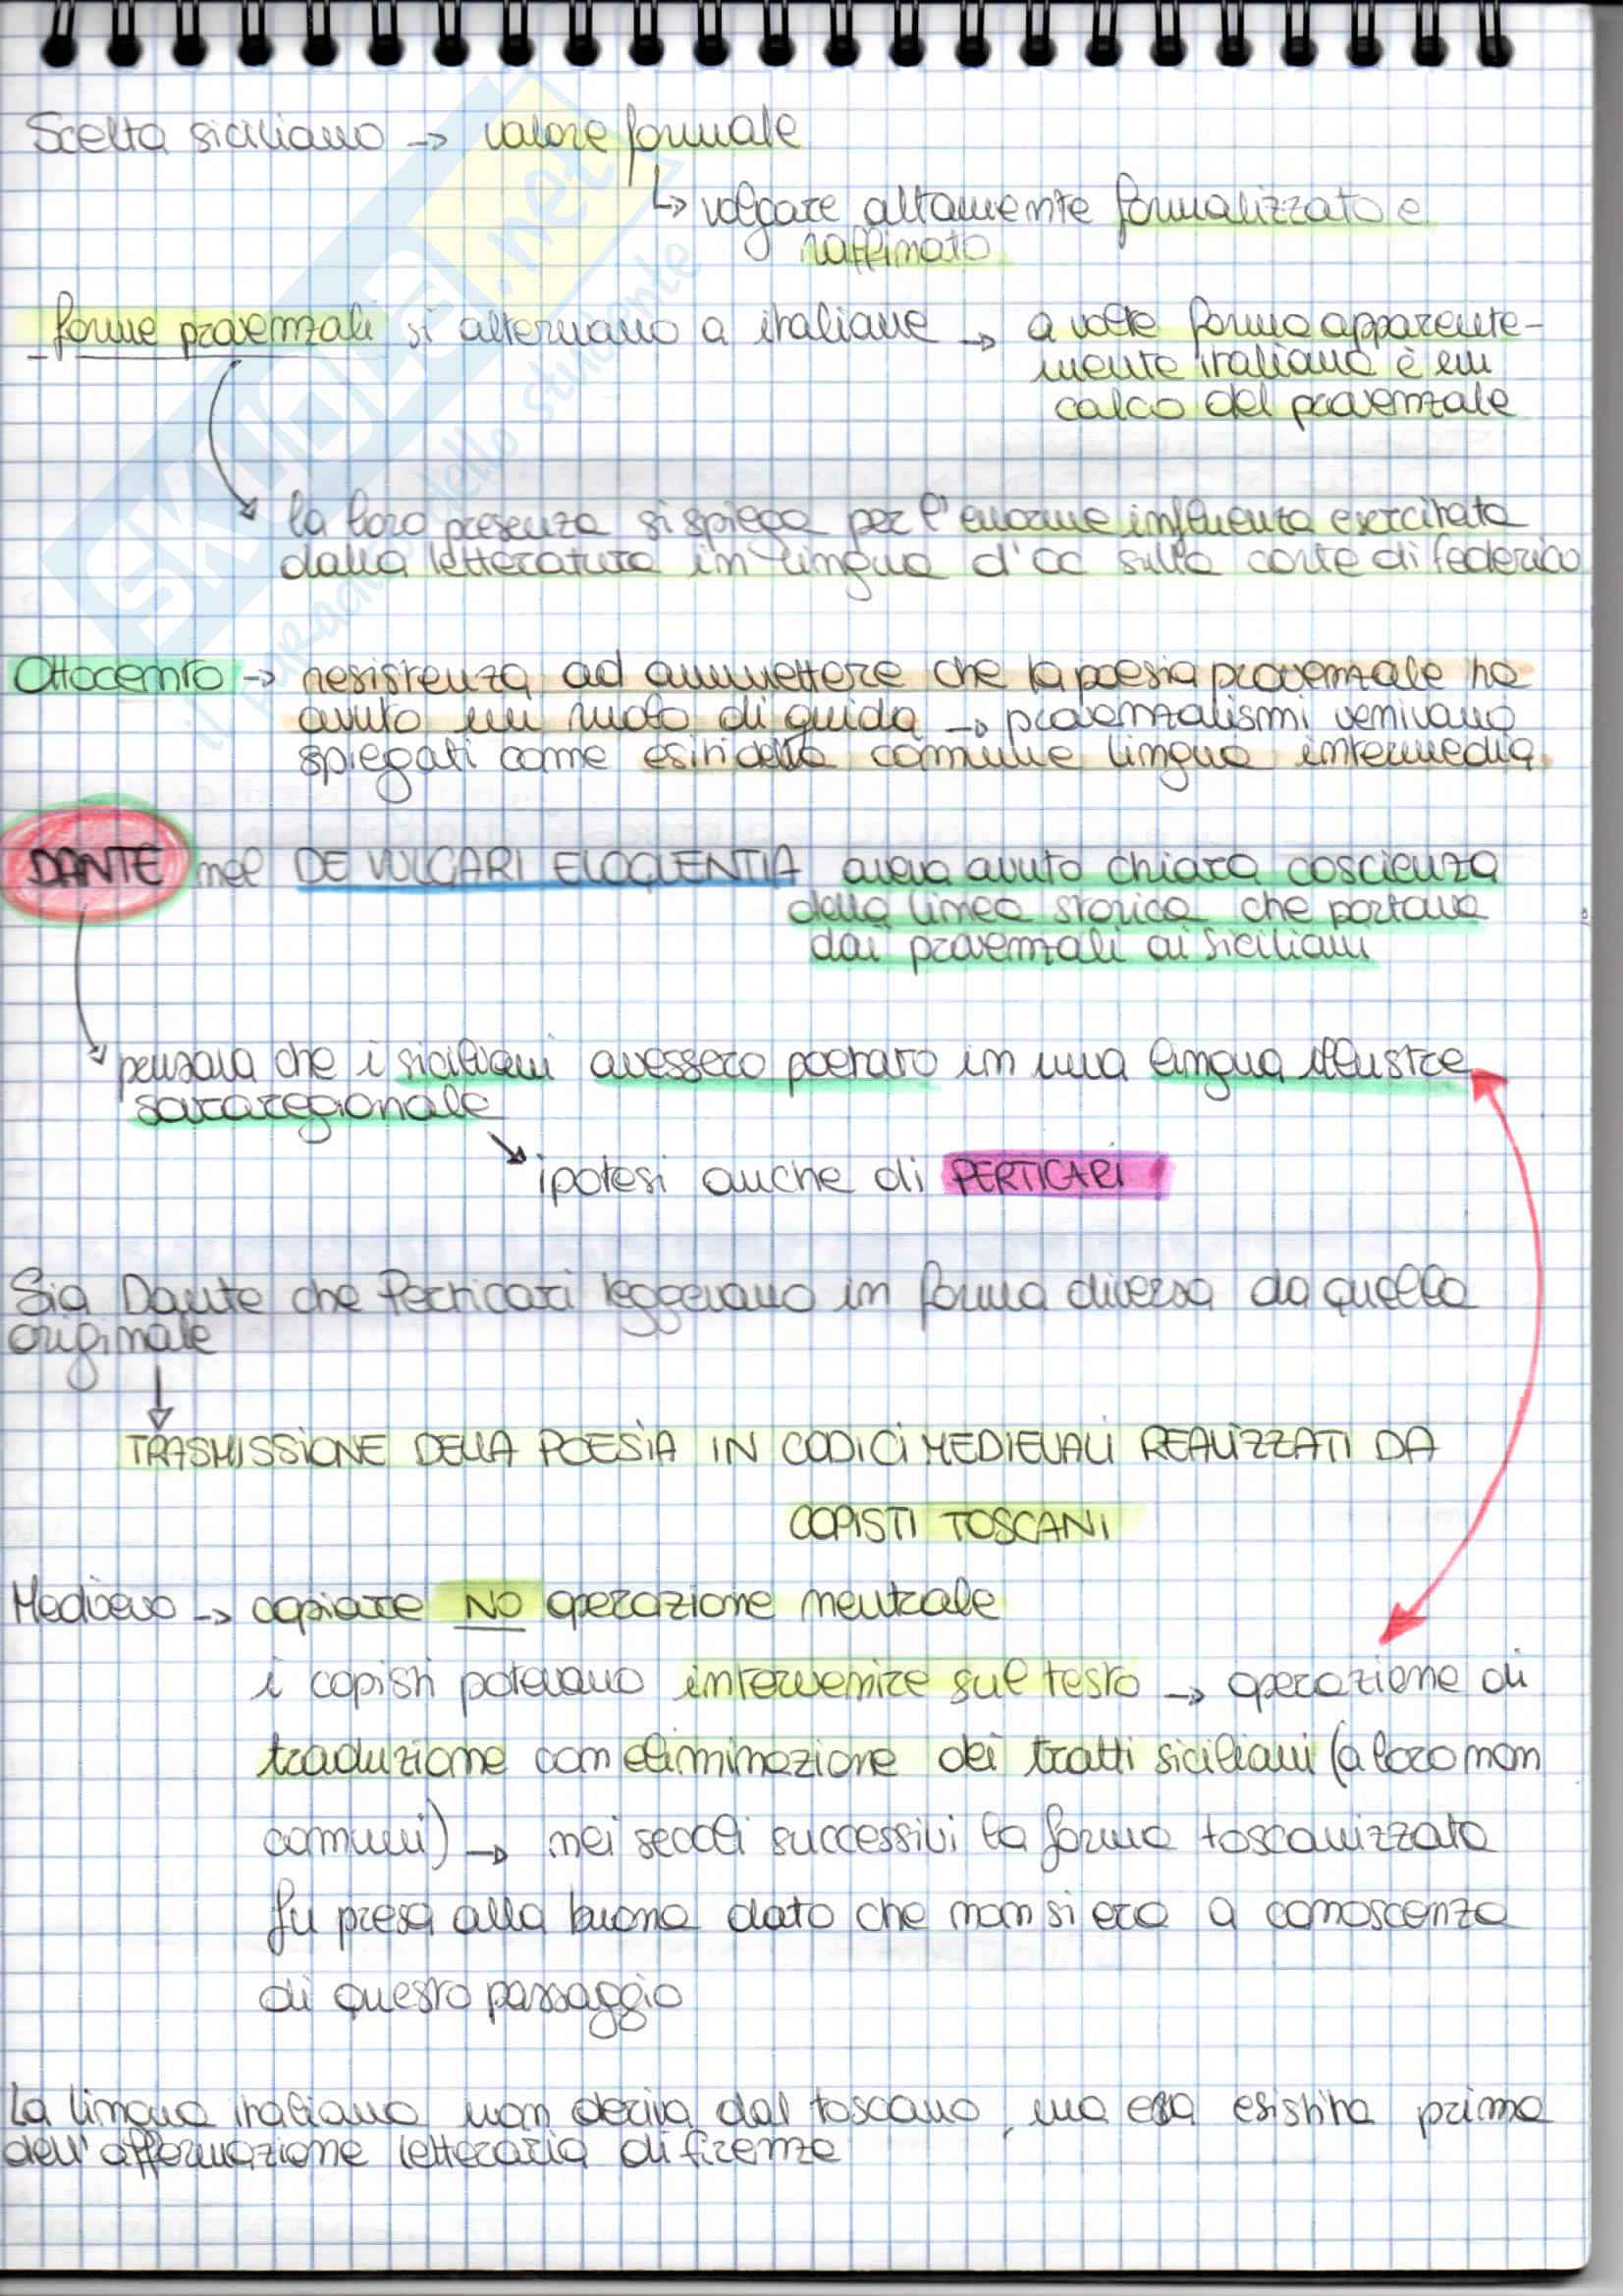 Scelta siciliano → valore formale
↳ volgare altamente formalizzato e
raffinato
- forme provenzali si alternano a italiane → a volte forma apparente-
mente italiana è un
calco del provenzale
la loro presenza si spiega per l'enorme influenza esercitata
dalla letteratura in lingua d'oc sulla corte di federico
Ottocento → resistenza ad ammettere che la poesia provenzale ha
avuto un ruolo di guida → provenzalismi venivano
spiegati come esiti della comune lingua intermedia.
DANTE nel DE VULGARI ELOQUENTIA aveva avuto chiara coscienza
della linea storica che portava
dai provenzali ai siciliani
pensava che i siciliani avessero poetato in una lingua illustre
sovraregionale
ipotesi anche di PERTICARI
Sia Dante che Perticari leggevano in forma diversa da quella
originale
TRASMISSIONE DELLA POESIA IN CODICI MEDIEVALI REALIZZATI DA
COPISTI TOSCANI
Medioevo → copiare NO operazione neutrale
i copisti potevano intervenire sul testo → operazione di
traduzione con eliminazione dei tratti siciliani (a loro non
comuni) → nei secoli successivi la forma toscanizzata
fu presa alla buona dato che non si era a conoscenza
di questo passaggio
La lingua italiana non deriva dal toscano, ma era esistita prima
dell'affermazione letteraria di firenze
SKUOLA.net
il paradiso dello studente